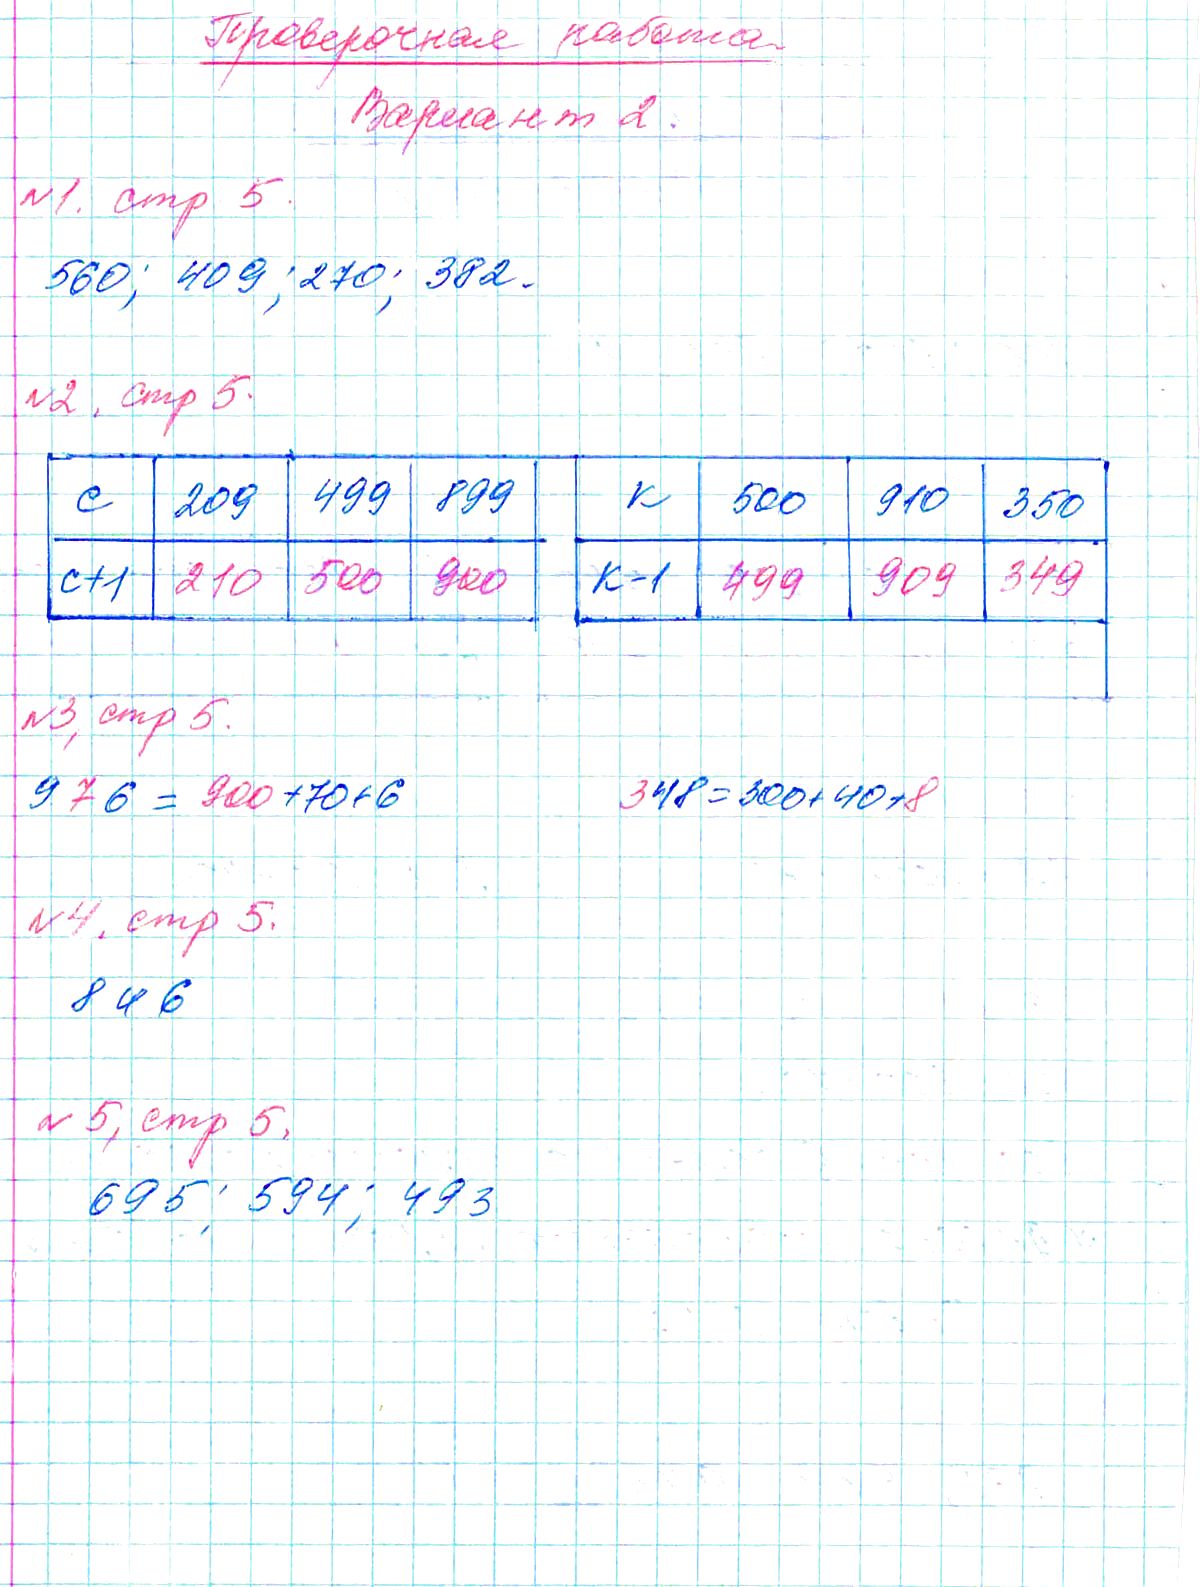 Проверочная работа.
Вариант 2.
№1. стр 5.
560; 409; 270; 382.
№2. стр 5.
с 209 499 899 к 500 910 350
с+1 210 500 900 к-1 499 909 349
№3, стр 5.
976 = 900+70+6 348=300+40+8
№4. стр 5.
846
№5, стр 5.
695; 594; 493